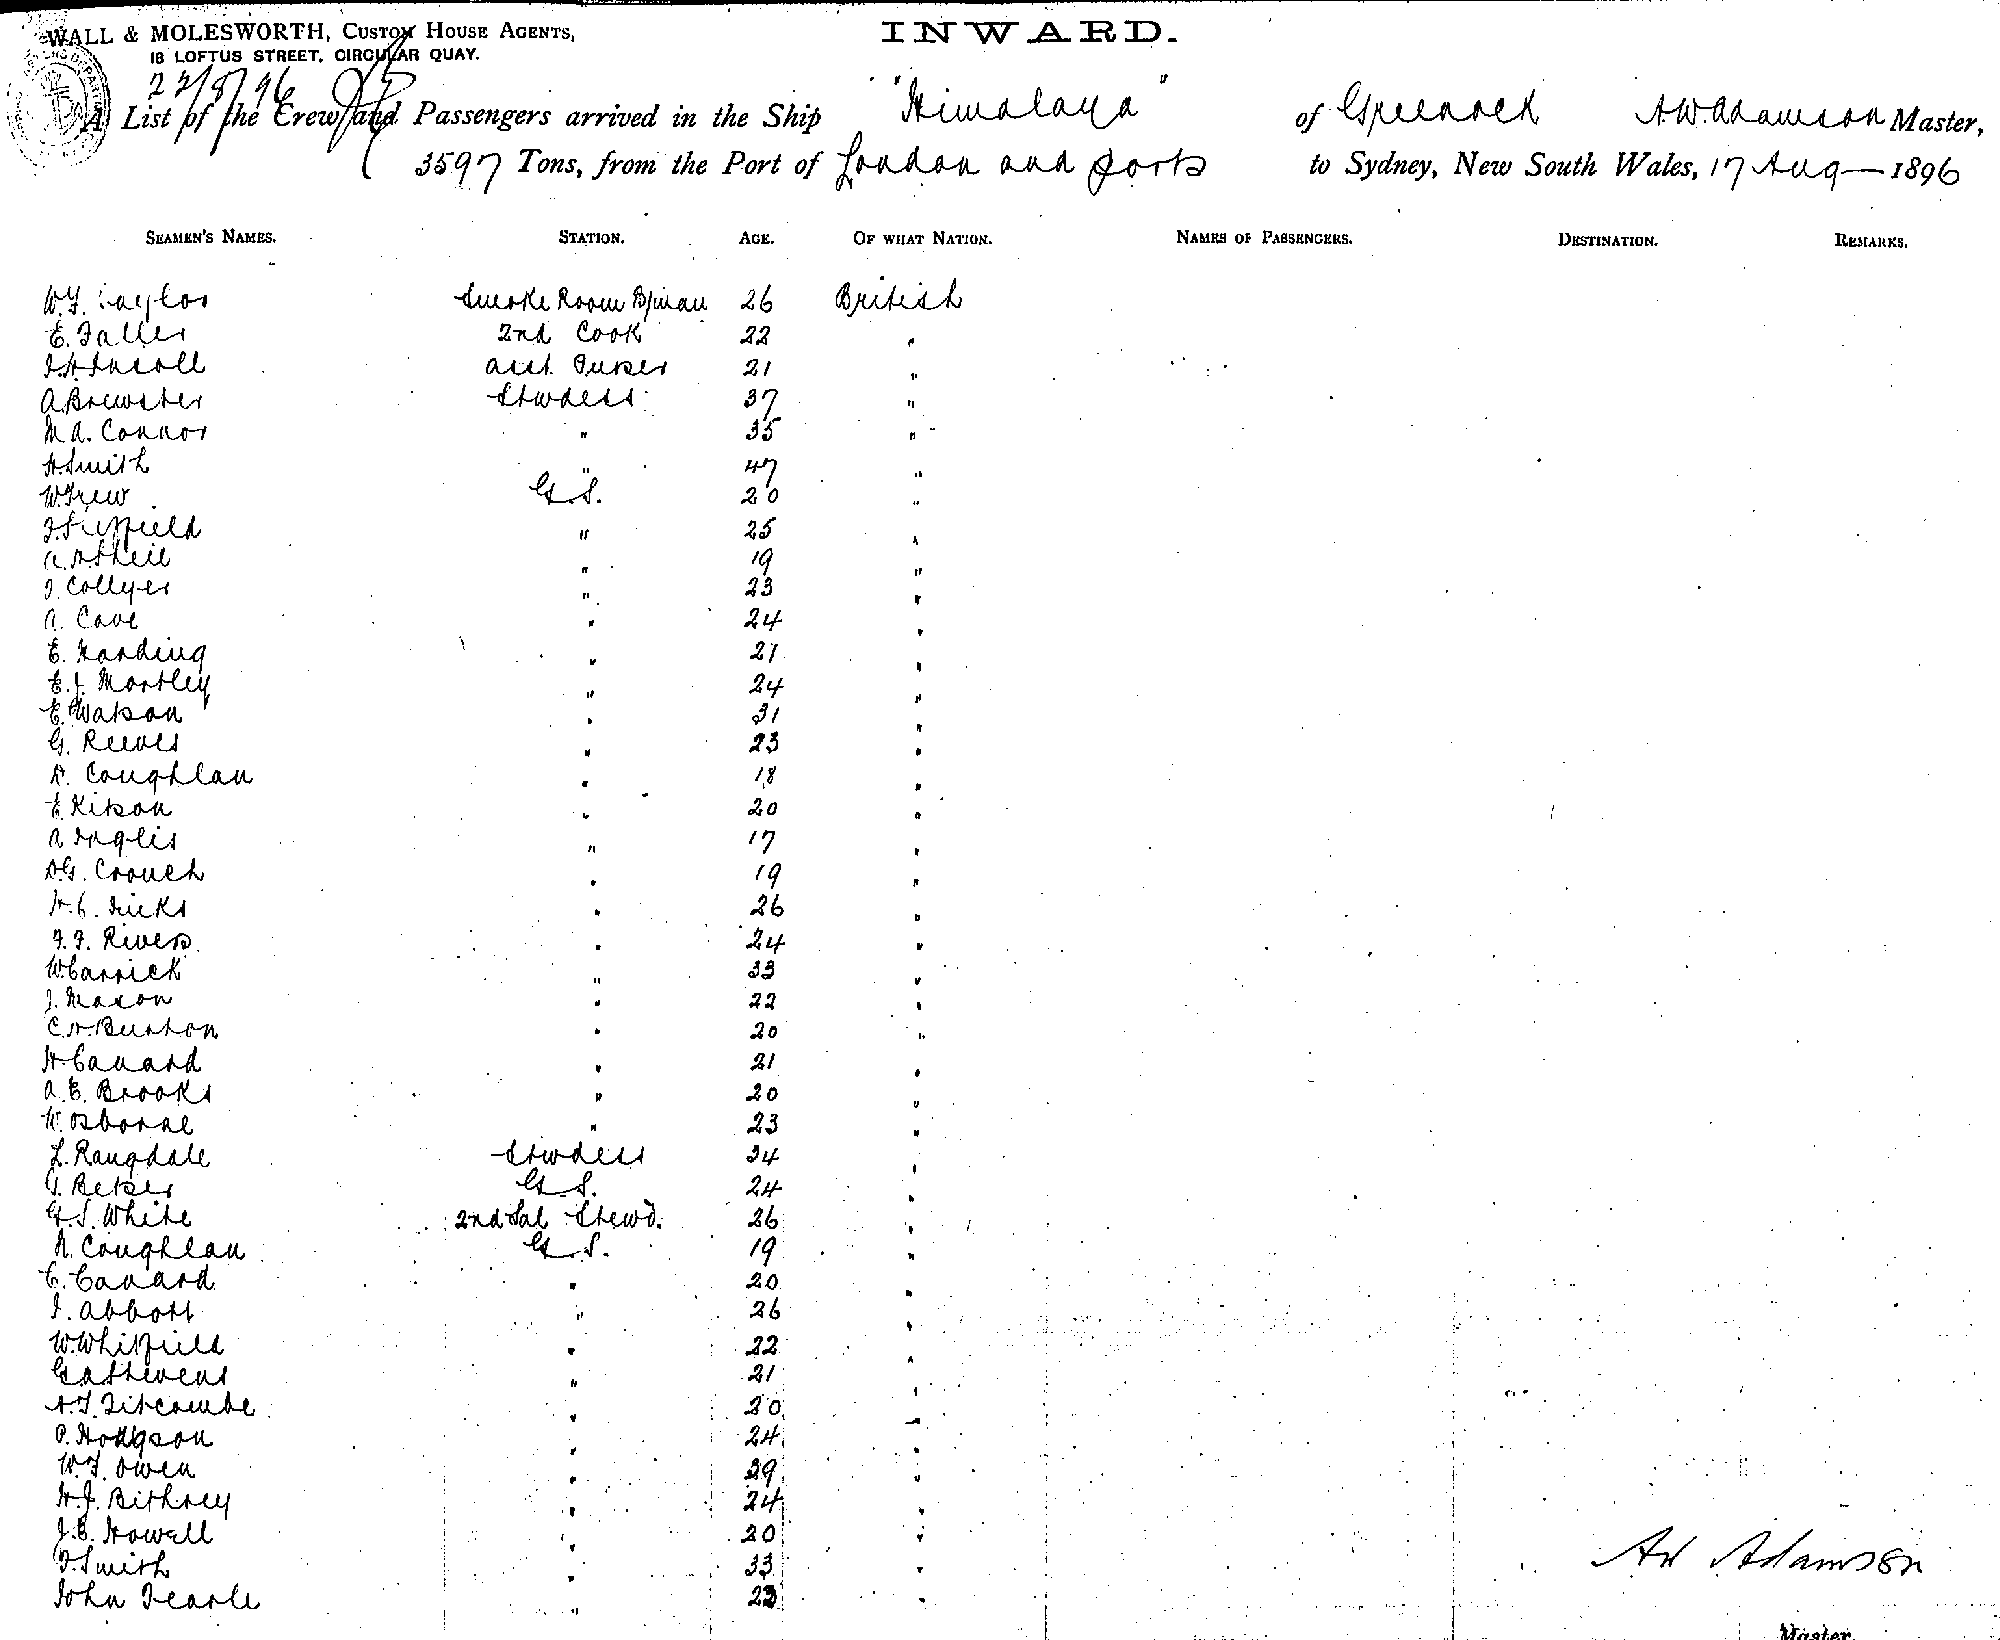 WALL & MOLESWORTH, CUSTOM HOUSE AGENTS,
18 LOFTUS STREET, CIRCULAR QUAY.
INWARD.
22/8/96
A List of the Crew and Passengers arrived in the Ship "Himalaya" of Greenock A.W. Adamson Master,
3597 Tons, from the Port of London and ports to Sydney, New South Wales, 17 Aug 1896
SEAMEN'S NAMES. STATION. AGE. OF WHAT NATION. NAMES OF PASSENGERS. DESTINATION. REMARKS.
Taylor Smoke Room 26 British
E. Faller 2nd Cook 22 "
asst Purser 21 "
A. Brewster Stwdess 37 "
M.A. Connor " 35 "
H. Smith " 47 "
W. G.S. 20 "
" 25 "
" 19 "
J. Collyer " 23 "
A. Cave " 24 "
E. Harding " 21 "
E.J. Mortley " 24 "
E. Watson " 31 "
G. Reeves " 23 "
Coughlan " 18 "
E. Kitson " 20 "
A Inglis " 17 "
Crouch " 19 "
" 26 "
F.F. Rivers " 24 "
W Carrick " 33 "
J. Mason " 22 "
C.H. Burton " 20 "
H. Canard " 21 "
A.E. Brooks " 20 "
W. Osborne " 23 "
L. Rangdale Stwdess 34 "
G.S. 24 "
G.S. White 2nd Sal Stewd. 26 "
Coughlan G.S. 19 "
C. Canard " 20 "
Abbott " 26 "
W. Whitfield " 22 "
G A Stevens " 21 "
Titcombe " 20 "
Hodgson " 24 "
Owen " 29 "
H.J. Bithrey " 24 "
Howell " 20 "
F. Smith " 33 "
John Fearle " 23 "
AW Adamson
Master